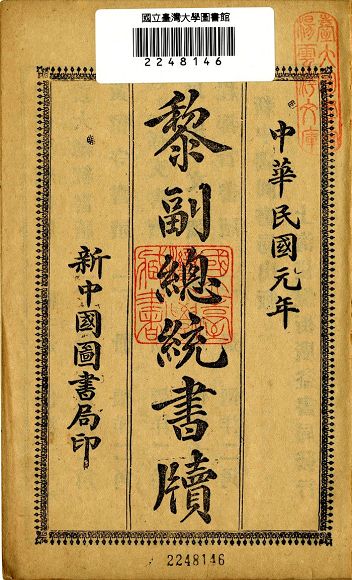 國立臺灣大學圖書館
2248146
中華民國元年
黎副總統書牘
新中國圖書局印
2248146